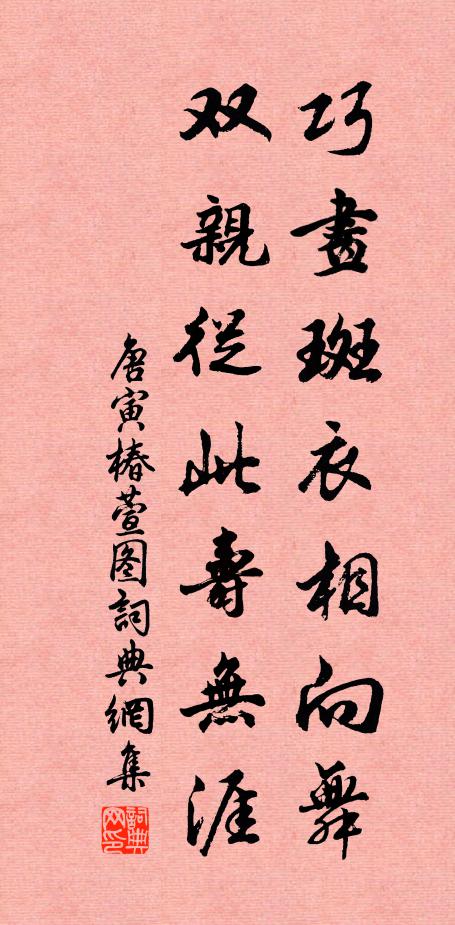 巧畫斑衣相向舞
双親從此壽無涯
唐寅椿萱图詞典網集
詞典网印